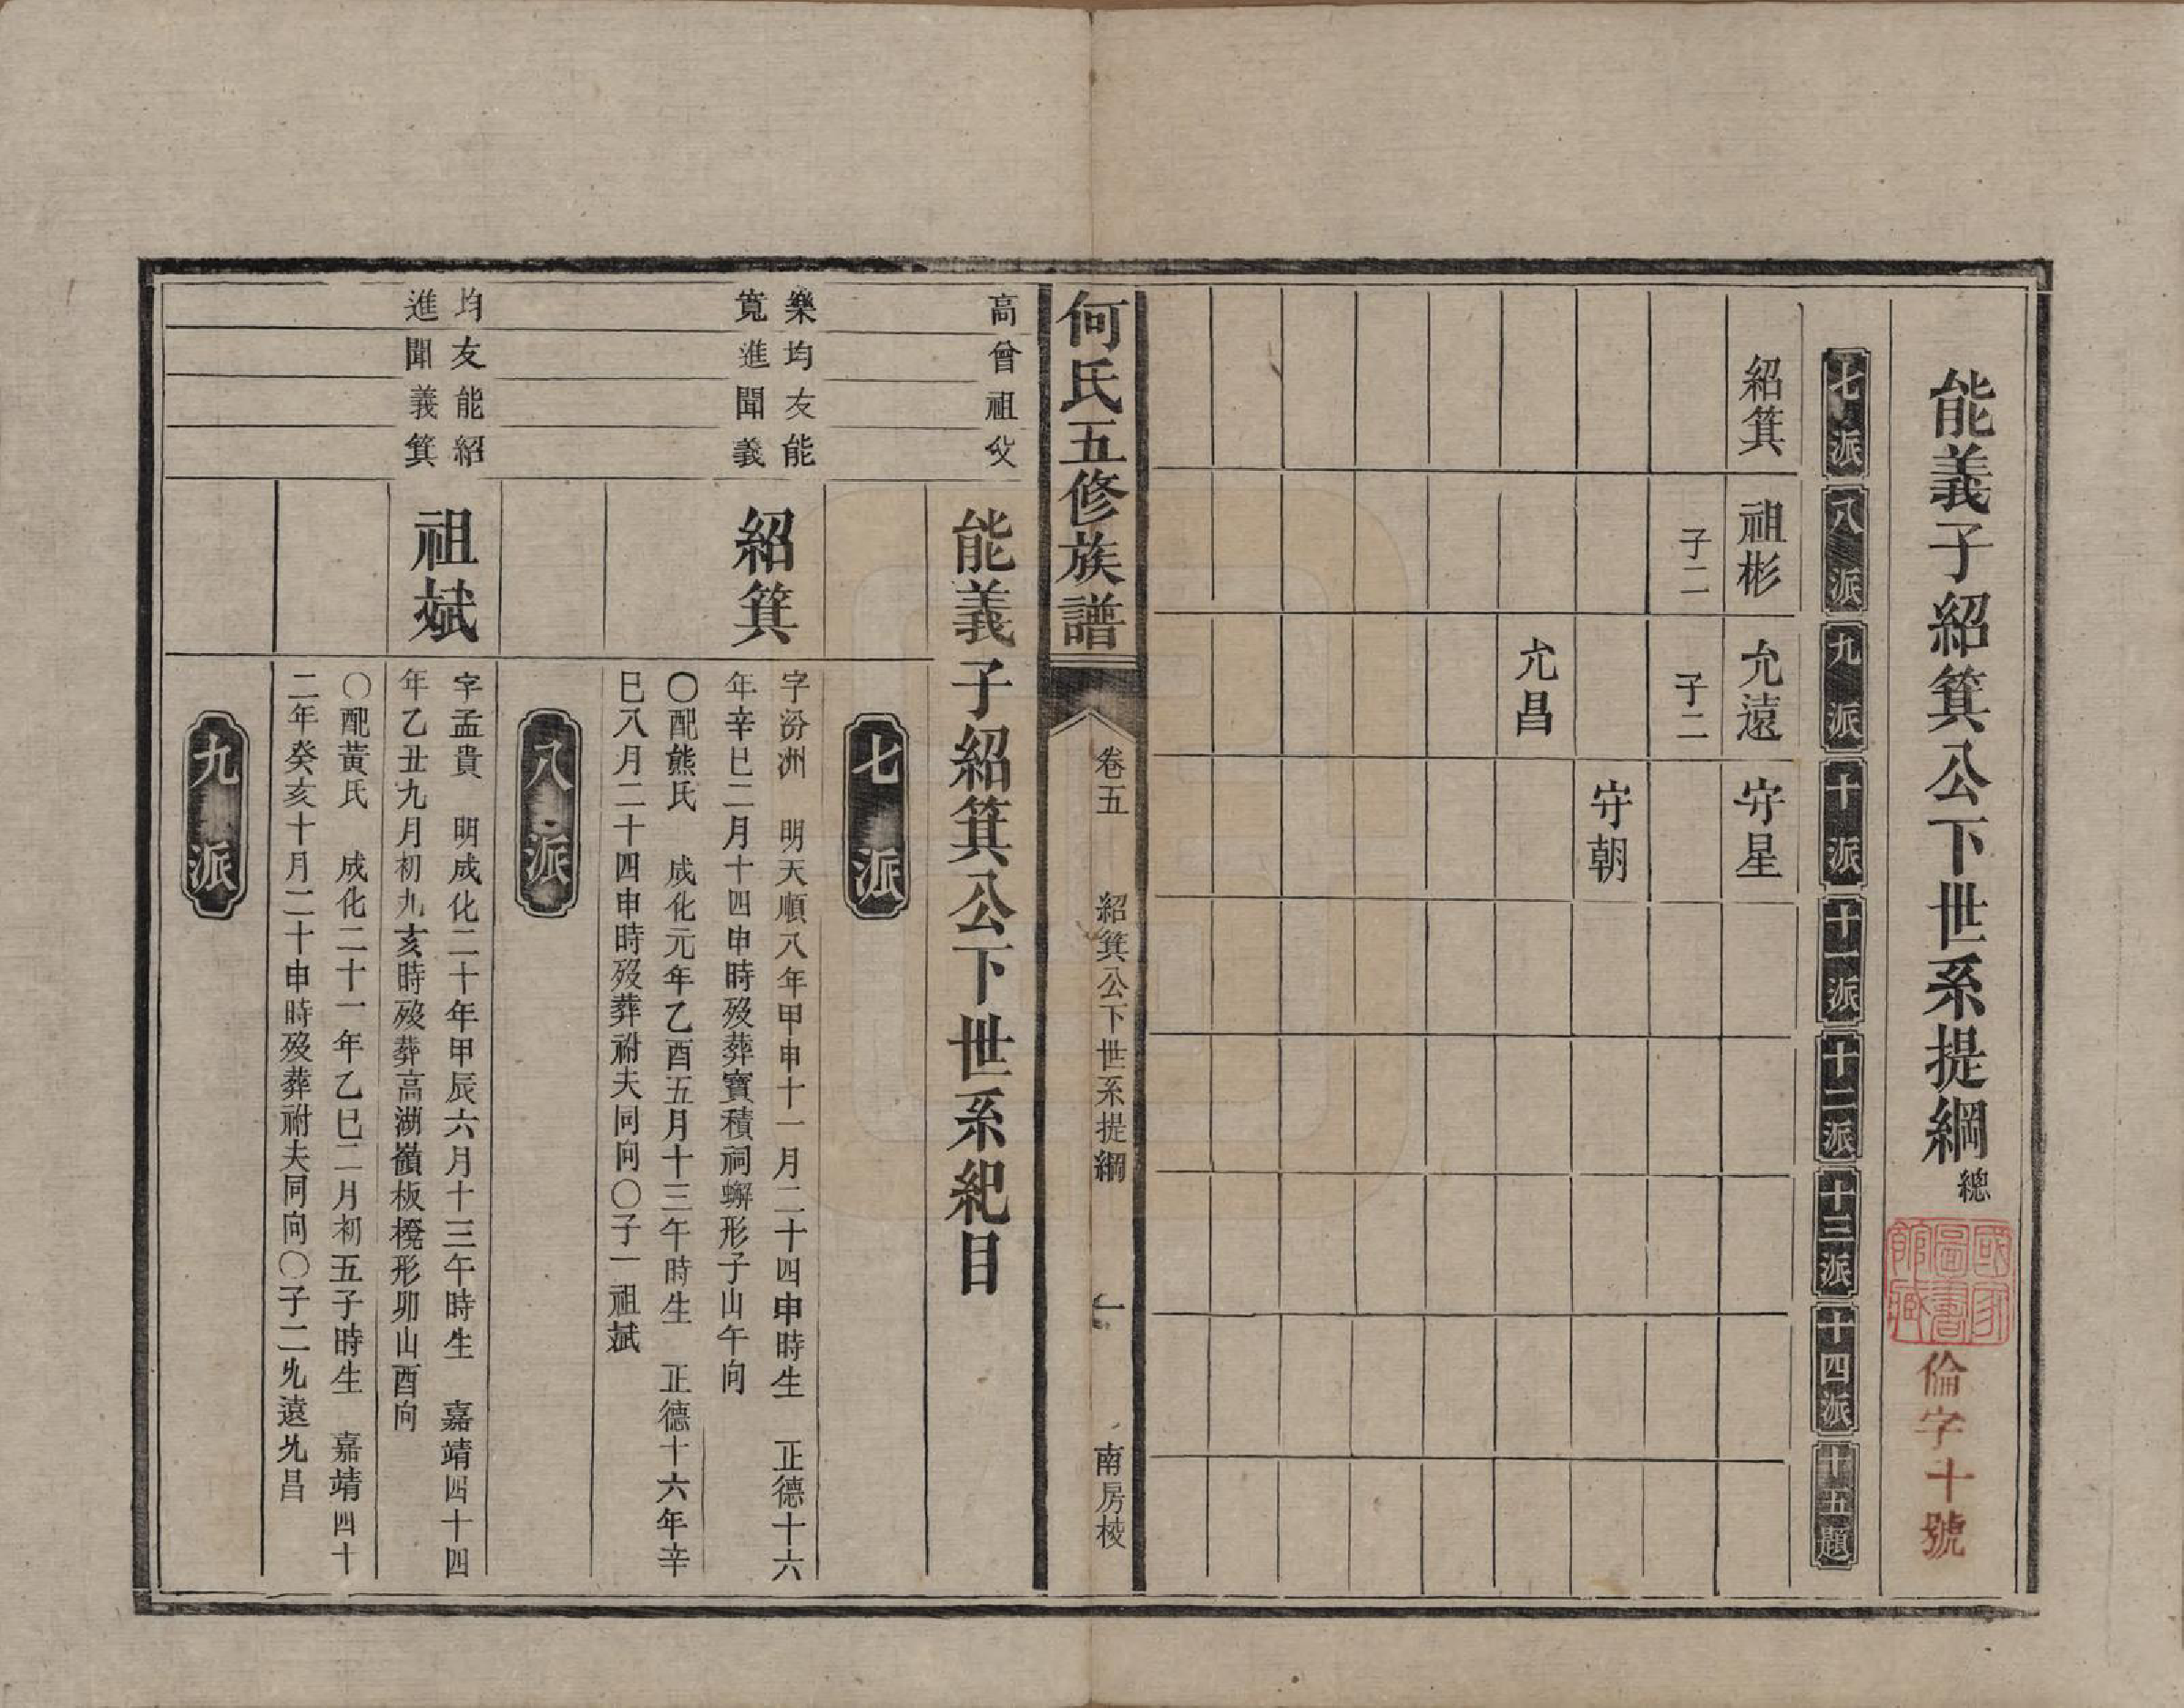 能義子紹箕公下世系提綱 總
國家圖書館藏
倫字十號
七派
八派
九派
十派
十一派
十二派
十三派
十四派
十五題
紹箕
祖彬
允遠
守星
子二
子二
守朝
允昌
何氏五修族譜
卷五
紹箕公下世系提綱
一
南房梭
高曾祖父
能義子紹箕公下世系紀目
七派
樂均友能
寬進聞義
紹箕
字汾洲 明天順八年甲申十一月二十四申時生 正德十六
年辛巳二月十四申時歿葬寶積祠蠏形子山午向
〇配熊氏 成化元年乙酉五月十三午時生 正德十六年辛
巳八月二十四申時歿葬祔夫同向〇子一祖斌
八派
均友能紹
進聞義箕
祖斌
字孟貴 明成化二十年甲辰六月十三午時生 嘉靖四十四
年乙丑九月初九亥時歿葬高湖嶺板櫈形卯山酉向
〇配黃氏 成化二十一年乙巳二月初五子時生 嘉靖四十
二年癸亥十月二十申時歿葬祔夫同向〇子二允遠允昌
九派